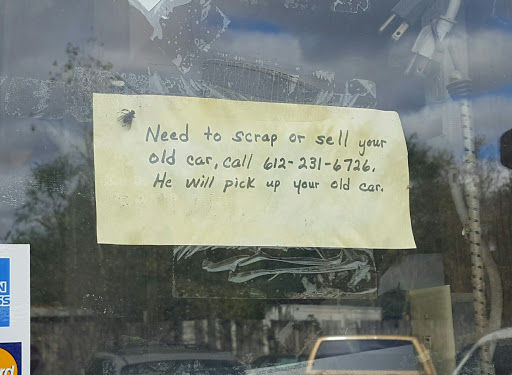 Need to scrap or sell your
old car, call 612-231-6726.
He will pick up your old car.